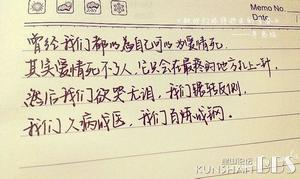 Memo No.
Date
曾经我们都以为自己可以为爱情死.
其实爱情死不了人，它只会在最疼的地方扎上一针，
然后我们欲哭无泪，我们辗转反侧，
我们久病成医，我们百炼成钢。
昆山论坛
KUNSHAN BBS